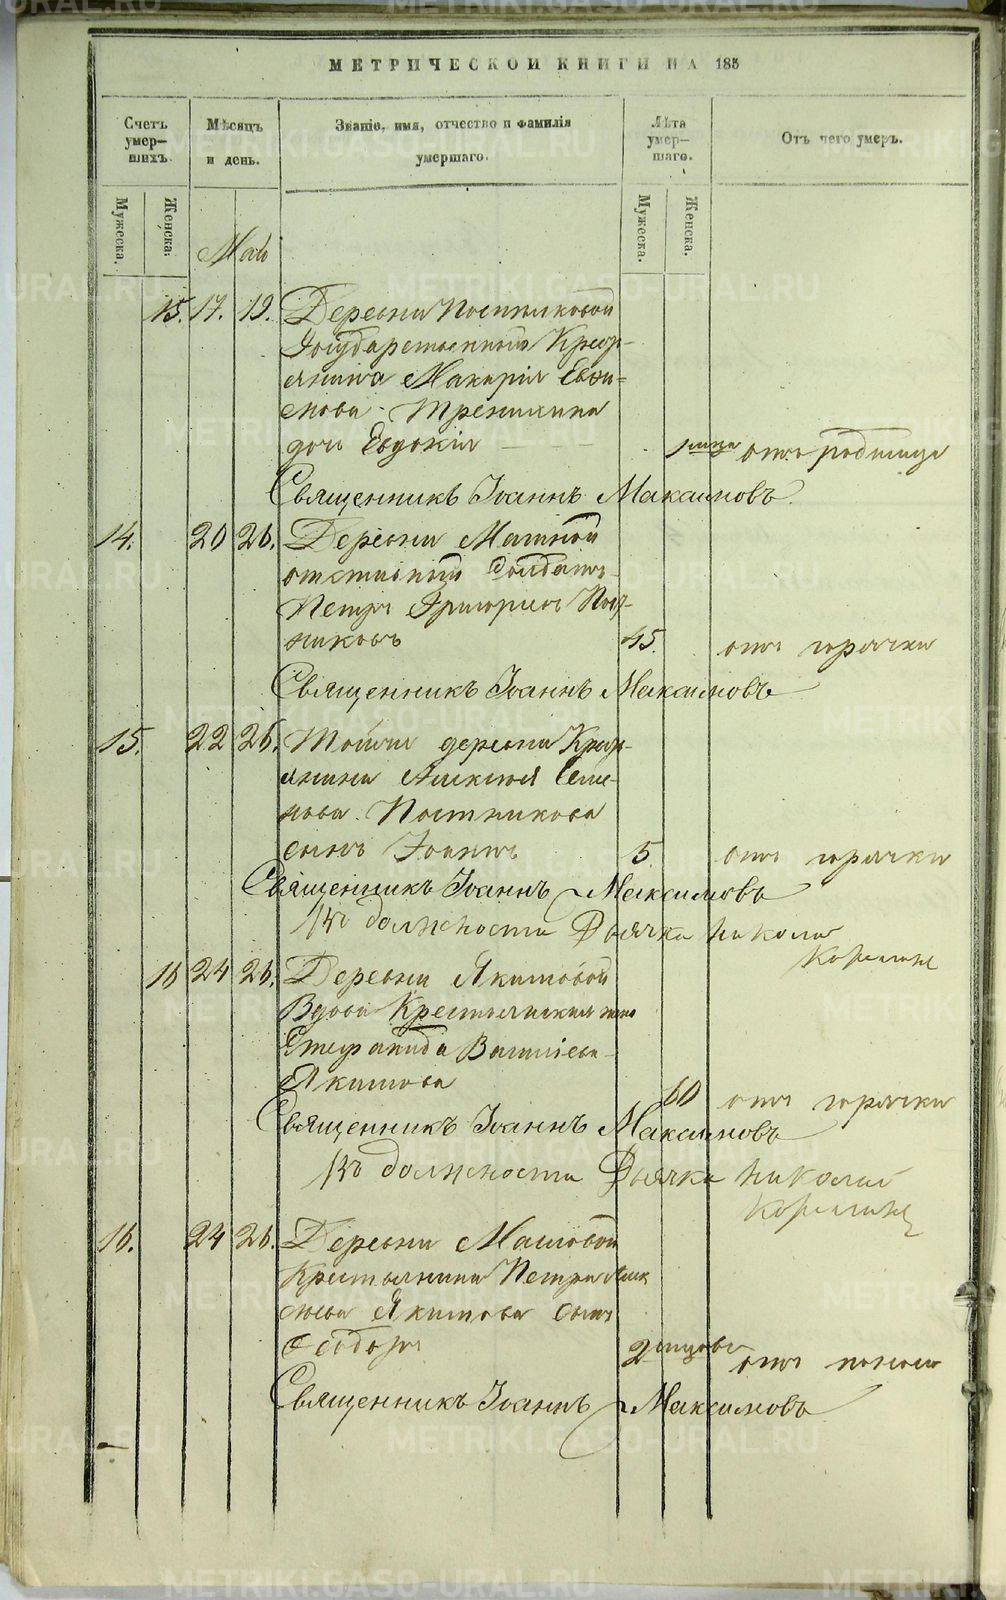 МЕТРИЧЕСКОЙ КНИГИ НА 185
Счетъ умер-шихъ.
Мѣсяцъ и день.
Званіе, имя, отчество и фамилія умершаго.
Лѣта умер-шаго.
Отъ чего умеръ.
Мужеска.
Женска.
Май
Мужеска.
Женска.
15. 17. 19. Деревни Постниковой
Государственнаго Кресть-
янина Макарія Евфи-
мова
дочь Евдокія 1 отъ родимца
Священникъ Іоаннъ Максимовъ
14. 20 26. Деревни
отставной Солдатъ
Петръ Григорьевъ Пост-
никовъ 45. отъ горячки
Священникъ Іоаннъ Максимовъ
15. 22 26. Той же деревни Кресть-
янина Алексѣя Семе-
нова Постникова
сынъ Іоаннъ 5 отъ горячки
Священникъ Іоаннъ Максимовъ
Въ должности Дьячка Николай
16 24 26. Деревни Якимовой
Вдова Крестьянская жена
Стефанида Василіева
Якимова 60 отъ горячки
Священникъ Іоаннъ Максимовъ
Въ должности Дьячка Николай
16. 24 26. Деревни
Крестьянина Петра Алек
сѣева Якимова сынъ
Ѳеодоръ 2 мѣсяцовъ отъ поноса
Священникъ Іоаннъ Максимовъ
METRIKI.GASO-URAL.RU